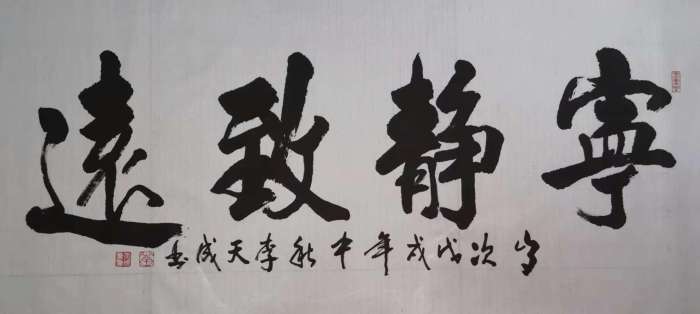 寧静致遠
岁次戊戌年中秋李天成书